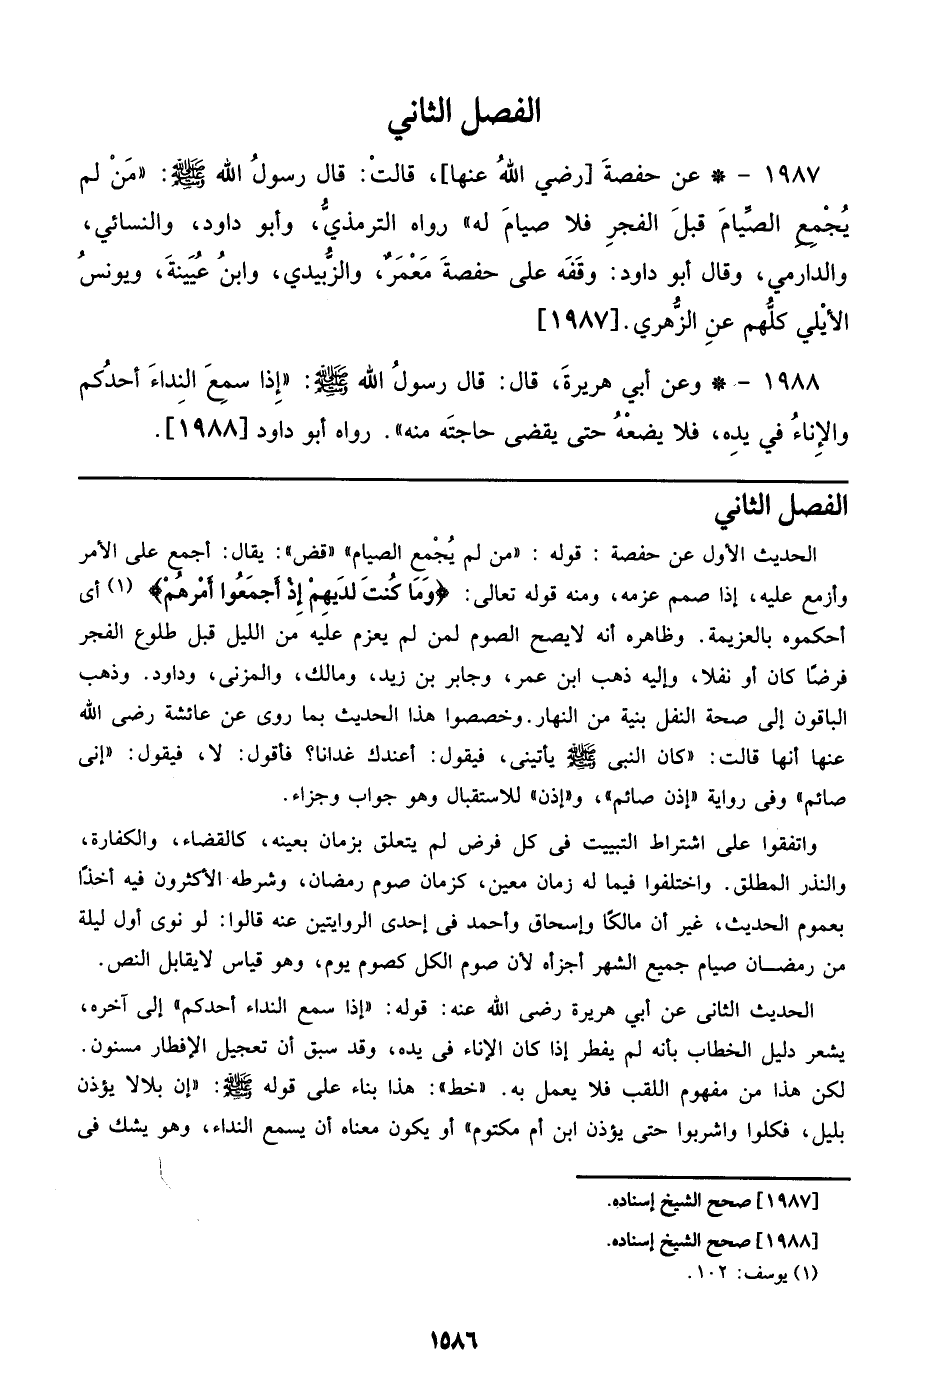 الفصل الثاني
١٩٨٧ - * عن حفصةَ [رضي اللهُ عنها]، قالتْ: قال رسولُ الله ﷺ: «مَنْ لم
يُجْمِعِ الصِّيامَ قبلَ الفجرِ فلا صيامَ له» رواه الترمذيُّ، وأبو داود، والنسائي،
والدارمي، وقال أبو داود: وقَفَه على حفصةَ مَعْمَرٌ، والزُّبيدي، وابنُ عُيَينةَ، ويونسُ
الأيْلي كلُّهم عنِ الزُّهري.[١٩٨٧]
١٩٨٨ - * وعن أبي هريرةَ، قال: قال رسولُ الله ﷺ: «إِذا سمعَ النِداءَ أحدُكم
والإِناءُ في يدِه، فلا يضعْهُ حتى يقضى حاجتَه منه». رواه أبو داود [١٩٨٨].
الفصل الثاني
الحديث الأول عن حفصة : قوله : «من لم يُجْمع الصيام» «قض»: يقال: أجمع على الأمر
وأزمع عليه، إذا صمم عزمه، ومنه قوله تعالى: ﴿وَمَا كُنتَ لدَيهِمْ إِذْ أَجمَعُوا أَمْرهُمْ﴾ (١) أى
أحكموه بالعزيمة. وظاهره أنه لايصح الصوم لمن لم يعزم عليه من الليل قبل طلوع الفجر
فرضًا كان أو نفلا، وإليه ذهب ابن عمر، وجابر بن زيد، ومالك، والمزنى، وداود. وذهب
الباقون إلى صحة النفل بنية من النهار.وخصصوا هذا الحديث بما روى عن عائشة رضى الله
عنها أنها قالت: «كان النبى ﷺ يأتينى، فيقول: أعندك غدانا؟ فأقول: لا، فيقول: «إنى
صائم» وفى رواية «إذن صائم»، و«إذن» للاستقبال وهو جواب وجزاء.
واتفقوا على اشتراط التبييت فى كل فرض لم يتعلق بزمان بعينه، كالقضاء، والكفارة،
والنذر المطلق. واختلفوا فيما له زمان معين، كزمان صوم رمضان، وشرطه الأكثرون فيه أخذًا
بعموم الحديث، غير أن مالكًا وإسحاق وأحمد فى إحدى الروايتين عنه قالوا: لو نوى أول ليلة
من رمضـــان صيام جميع الشهر أجزأه لأن صوم الكل كصوم يوم، وهو قياس لايقابل النص.
الحديث الثانى عن أبي هريرة رضى الله عنه: قوله: «إذا سمع النداء أحدكم» إلى آخره،
يشعر دليل الخطاب بأنه لم يفطر إذا كان الإناء فى يده، وقد سبق أن تعجيل الإفطار مسنون.
لكن هذا من مفهوم اللقب فلا يعمل به. «خط»: هذا بناء على قوله ﷺ: «إن بلالا يؤذن
بليل، فكلوا واشربوا حتى يؤذن ابن أم مكتوم» أو يكون معناه أن يسمع النداء، وهو يشك فى
[١٩٨٧] صحح الشيخ إسناده.
[١٩٨٨] صحح الشيخ إسناده.
(١) يوسف: ١٠٢.
١٥٨٦